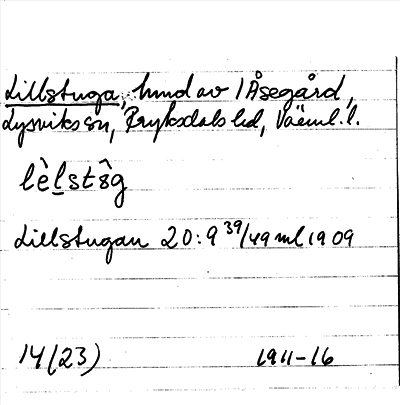 Lillstuga, hmd av 1 Åsegård,
Lysviks sn, Fryksdals hd, Värml. l.
lèlstôg
Lillstugan 20:9 39/49 ml 1909
14(23) 1911-16